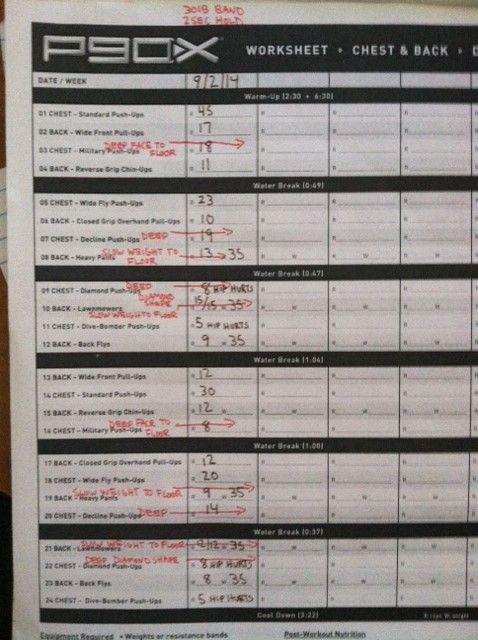 30LB BAND
2SEC HOLD
P90X WORKSHEET • CHEST & BACK •
DATE / WEEK 9/2/14
Warm-Up (2:30 + 6:30)
01 CHEST - Standard Push-Ups R 45 R R R
02 BACK - Wide Front Pull-Ups R 17 R R R
DEEP FACE TO FLOOR
03 CHEST - Military Push-Ups R 18 R R R
04 BACK - Reverse Grip Chin-Ups R 11 R R R
Water Break (0:49)
05 CHEST - Wide Fly Push-Ups R 23 R R R
06 BACK - Closed Grip Overhand Pull-Ups R 10 R R R
07 CHEST - Decline Push-Ups DEEP R 19 R R R
SLOW WEIGHT TO FLOOR
08 BACK - Heavy Pants R 13 W 35 R W R W R
Water Break (0:47)
DEEP DIAMOND SHAPE
09 CHEST - Diamond Push-Ups R 8 HIP HURTS R R R
10 BACK - Lawnmowers R 15/15 W 35 R W R W R
SLOW WEIGHT TO FLOOR
11 CHEST - Dive-Bomber Push-Ups R 5 HIP HURTS R R R
12 BACK - Back Flys R 9 W 35 R W R W R
Water Break (1:04)
13 BACK - Wide Front Pull-Ups R 12 R R R
14 CHEST - Standard Push-Ups R 30 R R R
15 BACK - Reverse Grip Chin-Ups R 12 W R W R W R
DEEP FACE TO FLOOR
16 CHEST - Military Push-Ups R 8 R R R
Water Break (1:00)
17 BACK - Closed Grip Overhand Pull-Ups R 12 R R R
18 CHEST - Wide Fly Push-Ups R 20 R R R
SLOW WEIGHT TO FLOOR
19 BACK - Heavy Pants R 9 W 35 R W R W R
20 CHEST - Decline Push-Ups DEEP R 14 R R R
Water Break (0:37)
SLOW WEIGHT TO FLOOR
21 BACK - Lawnmowers R /12 W 35 R W R W R
DEEP DIAMOND SHAPE
22 CHEST - Diamond Push-Ups R 8 HIP HURTS R R R
23 BACK - Back Flys R 8 W 35 R W R W R
24 CHEST - Dive-Bomber Push-Ups R 5 HIP HURTS R R R
Cool Down (3:22)
Equipment Required • Weights or resistance bands Post-Workout Nutrition